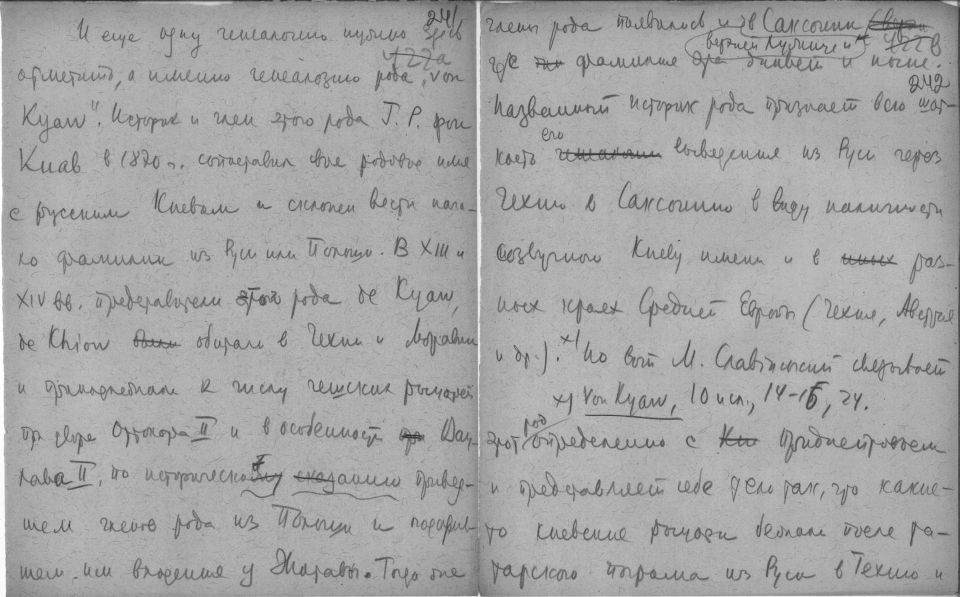 241
И еще одну генеалогию нужно здесь
422а
отметить, а именно генеалогию рода „von
Kyaw". Историк и член этого рода Г. Р. фон
Киав в 1870 г. сопоставил свое родовое имя
с русским Киевом и склонен вести нача-
ло фамилии из Руси или Польши. В XIII и
XIV вв. представители этого рода de Kyaw,
de Khiow были обитали в Чехии и Моравии
и принадлежали к числу чешских рыцарей
при дворе Оттокара II и в особенности Вац-
лава II, по историческому сказанию привед-
шем членов рода из Польши и подарив-
шем им владения у Житавы. Тогда оне
члены рода появились и в Саксонии
422в
верхней Лужице и
где фамилия эта бывает и ныне.
242
Названный историк рода признает всю шат-
кость его генеалогии выведения из Руси через
Чехию в Саксонию в виду наличности
созвучного Киеву имени и в иных раз-
ных краях Средней Европы (Чехия, Австрия
и др.). х) Но вот М. Славинский связывает
х) Von Kyaw, 10 и сл., 14-15, 24.
этот род определенно с Ки Приднестровьем
и представляет себе дело так, что какие-
то киевские рыцари бежали после та-
тарского погрома из Руси в Чехию и